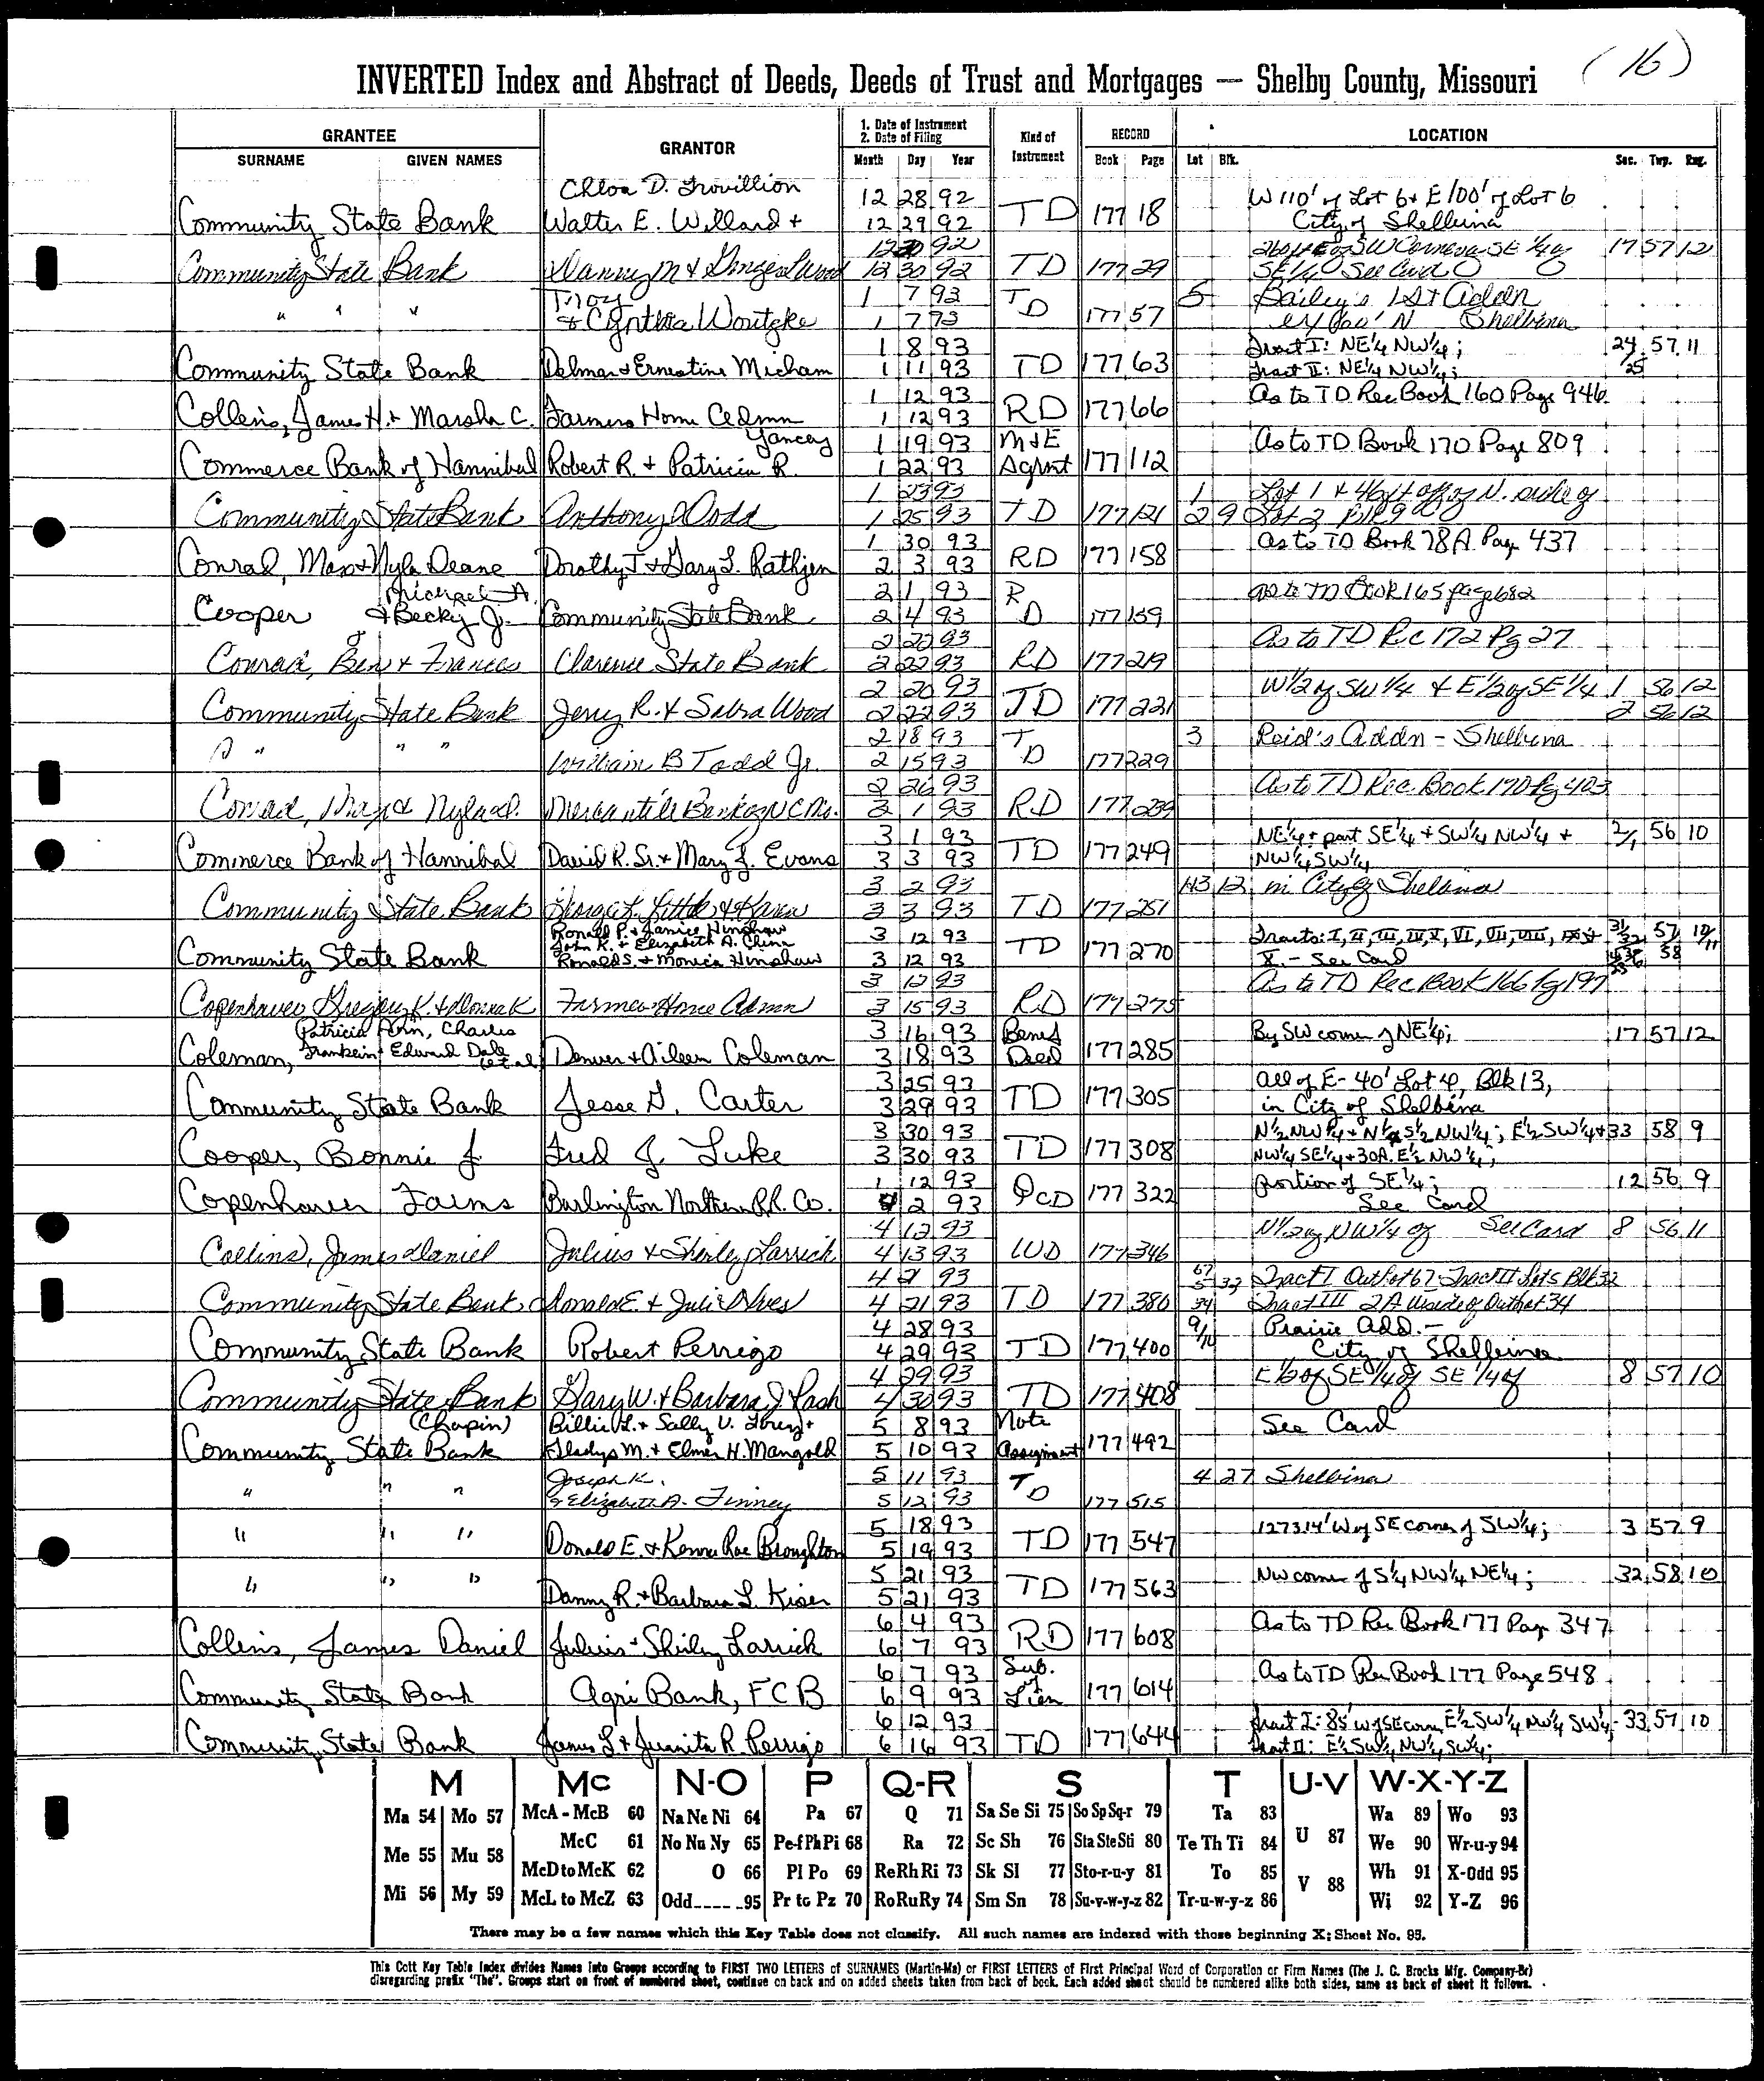 (16)
INVERTED Index and Abstract of Deeds, Deeds of Trust and Mortgages — Shelby County, Missouri
GRANTEE GRANTOR 1. Date of Instrument 2. Date of Filing Kind of Instrument RECORD LOCATION
SURNAME GIVEN NAMES Month Day Year Book Page Lot Blk. Sec. Twp. Rng.
Chloa D. Trovillion 12 28 92 W 110' of Lot 6 + E 100' of Lot 6
Community State Bank Walter E. Willard + 12 29 92 TD 177 18 City of Shelbina
12 30 92 SW Corner SE 1/4 of 17 57 12
Community State Bank Danny M & Wood 12 30 92 TD 177 29 SE 1/4 See Card
Troy 1 7 93 T 5 Bailey's 1st Addn
" " " & Cynthia Woutzke 1 7 93 D 177 57 N Shelbina
1 8 93 Tract I: NE 1/4 NW 1/4; 24 57 11
Community State Bank Delmar & Ernestine Micham 1 11 93 TD 177 63 Tract II: NE 1/4 NW 1/4; /25
1 12 93 As to TD Rec Book 160 Page 946
Collins, James H. + Marsha C. Farmers Home Admn 1 12 93 RD 177 66
Yancey 1 19 93 M & E As to TD Book 170 Page 809
Commerce Bank of Hannibal Robert R. + Patricia R. 1 22 93 Agrmt 177 112
1 23 93 1 Lot 1 & 46 ft off of N. side of
Community State Bank Anthony Dodd 1 25 93 TD 177 121 2 9 Lot 2 Blk 9
1 30 93 As to TD Book 78A Page 437
Conrad, Max & Nyla Deane Dorothy T & Gary L. Rathjen 2 3 93 RD 177 158
Michael A. 2 1 93 R As to TD Book 165 page 682
Cooper & Becky J. Community State Bank 2 4 93 D 177 159
2 22 93 As to TD Rec 172 Pg 27
Conrad, Ben J & Frances Clarence State Bank 2 22 93 RD 177 219
2 20 93 W 1/2 of SW 1/4 & E 1/2 of SE 1/4 1 56 12
Community State Bank Jerry R. & Sabra Wood 2 22 93 TD 177 221 2 56 12
2 18 93 T 3 Reid's Addn - Shelbina
" " " " William B Todd Jr. 2 15 93 D 177 229
2 26 93 As to TD Rec. Book 170 Pg 403
Conrad, Max & Nyla D. Mercantile Bank of NC Mo. 3 1 93 RD 177 239
3 1 93 NE 1/4 + part SE 1/4 + SW 1/4 NW 1/4 + 2/1 56 10
Commerce Bank of Hannibal David R. Sr. + Mary J. Evans 3 3 93 TD 177 249 NW 1/4 SW 1/4
3 2 93 13 in City of Shelbina
Community State Bank George L. Little & Karen 3 3 93 TD 177 251
Ronald P. + Janice Hinshaw 3 12 93 Tracts: I, II, III, IV, V, VI, VII, VIII, IX + 31/32 57 10/11
John K. + Elizabeth A. China TD 177 270
Community State Bank Ronald S. + Monica Hinshaw 3 12 93 X. - See Card 58
3 12 93 As to TD Rec Book 166 Pg 197
Copenhaver Gregory K. & Donna K Farmers Home Admn 3 15 93 RD 177 275
Patricia Ann, Charles 3 16 93 Benef By SW corner of NE 1/4; 17 57 12
Coleman, Franklin + Edward Dale et al Denver + Aileen Coleman 3 18 93 Deed 177 285
3 25 93 All of E-40' Lot 4, Blk 13,
Community State Bank Jesse D. Carter 3 29 93 TD 177 305 in City of Shelbina
3 30 93 N 1/2 NW 1/4 + N 1/2 S 1/2 NW 1/4; E 1/2 SW 1/4 + 33 58 9
Cooper, Bonnie J. Fred J. Luke 3 30 93 TD 177 308 NW 1/4 SE 1/4 + 30A. E 1/2 NW 1/4;
1 12 93 portion of SE 1/4; 12 56 9
Copenhaver Farms Burlington Northern RR. Co. 4 2 93 QCD 177 322 See Card
4 12 93 N 1/2 of NW 1/4 of See Card 8 56 11
Collins, James Daniel Julius & Shirley Larrick 4 13 93 WD 177 346
4 21 93 67 5 32 Tract I Outlot 67 Tract II Lot 5 Blk 32
Community State Bank Donald E. & Julie Alves 4 21 93 TD 177 380 34 Tract III 2A W side of Outlot 34
4 28 93 9/10 Prairie Add. -
Community State Bank Robert Perrigo 4 29 93 TD 177 400 City of Shelbina
4 29 93 E 1/2 of SE 1/4 of SE 1/4 of 8 57 10
Community State Bank Gary W. & Barbara J Pash 4 30 93 TD 177 408
(Chapin) Billie L. + Sally V. + 5 8 93 Note See Card
Community State Bank Gladys M. + Elmer H. Mangold 5 10 93 Assignment 177 492
Joseph K. 5 11 93 T 4 27 Shelbina
" " " & Elizabeth A. Finney 5 12 93 D 177 515
5 18 93 1273.14' W of SE corner of SW 1/4; 3 57 9
" " " Donald E. + Kenna Rae Broughton 5 19 93 TD 177 547
5 21 93 NW corner of S 1/4 NW 1/4 NE 1/4; 32 58 10
" " " Danny R. + Barbara L. Kiser 5 21 93 TD 177 563
6 4 93 As to TD Rec Book 177 Page 347
Collins, James Daniel Julius + Shirley Larrick 6 7 93 RD 177 608
6 7 93 Sub. of As to TD Rec Book 177 Page 548
Community State Bank Agri Bank, FCB 6 9 93 Lien 177 614
6 12 93 Tract I: 85' W of SE corn E 1/2 SW 1/4 NW 1/4 SW 1/4; 33 57 10
Community State Bank James L + Juanita R. Perrigo 6 16 93 TD 177 644 Tract II: E 1/2 SW 1/4 NW 1/4 SW 1/4;
M Mc N-O P Q-R S T U-V W-X-Y-Z
Ma 54 Mo 57 McA-McB 60 Na Ne Ni 64 Pa 67 Q 71 Sa Se Si 75 So Sp Sq-r 79 Ta 83 U 87 Wa 89 Wo 93
Me 55 Mu 58 McC 61 No Nu Ny 65 Pe-f Ph Pi 68 Ra 72 Sc Sh 76 Sta Ste Sti 80 Te Th Ti 84 We 90 Wr-u-y 94
McD to McK 62 O 66 Pl Po 69 Re Rh Ri 73 Sk Sl 77 Sto-r-u-y 81 To 85 V 88 Wh 91 X-Odd 95
Mi 56 My 59 McL to McZ 63 Odd_____95 Pr to Pz 70 Ro Ru Ry 74 Sm Sn 78 Su-v-w-y-z 82 Tr-u-w-y-z 86 Wi 92 Y-Z 96
There may be a few names which this Key Table does not classify. All such names are indexed with those beginning X; Sheet No. 95.
This Cott Key Table Index divides Names into Groups according to FIRST TWO LETTERS of SURNAMES (Martin-Ma) or FIRST LETTERS of First Principal Word of Corporation or Firm Names (The J. C. Brocks Mfg. Company-Br)
disregarding prefix "The". Groups start on front of numbered sheet, continue on back and on added sheets taken from back of book. Each added sheet should be numbered alike both sides, same as back of sheet it follows.